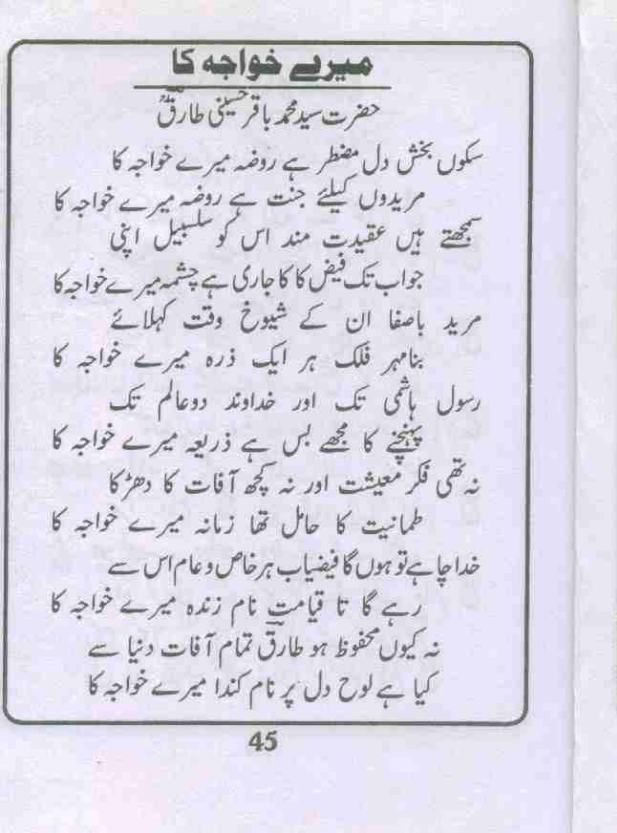 میرے خواجہ کا
حضرت سید محمد باقر حسینی طارقؒ
سکوں بخش دل مضطر ہے روضہ میرے خواجہ کا
مریدوں کیلئے جنت ہے روضہ میرے خواجہ کا
سمجھتے ہیں عقیدت مند اس کو سلسبیل اپنی
جواب تک فیض کا کا جاری ہے چشمہ میرے خواجہ کا
مرید باصفا ان کے شیوخ وقت کہلائے
بنا مہر فلک ہر ایک ذرہ میرے خواجہ کا
رسول ہاشمی تک اور خداوند دوعالم تک
پہنچنے کا مجھے بس ہے ذریعہ میرے خواجہ کا
نہ تھی فکر معیشت اور نہ کچھ آفات کا دھڑکا
طمانیت کا حامل تھا زمانہ میرے خواجہ کا
خدا چاہے تو ہوں گا فیضیاب ہر خاص و عام اس سے
رہے گا تا قیامت نام زندہ میرے خواجہ کا
نہ کیوں محفوظ ہو طارق تمام آفات دنیا سے
کیا ہے لوح دل پر نام کندا میرے خواجہ کا
45